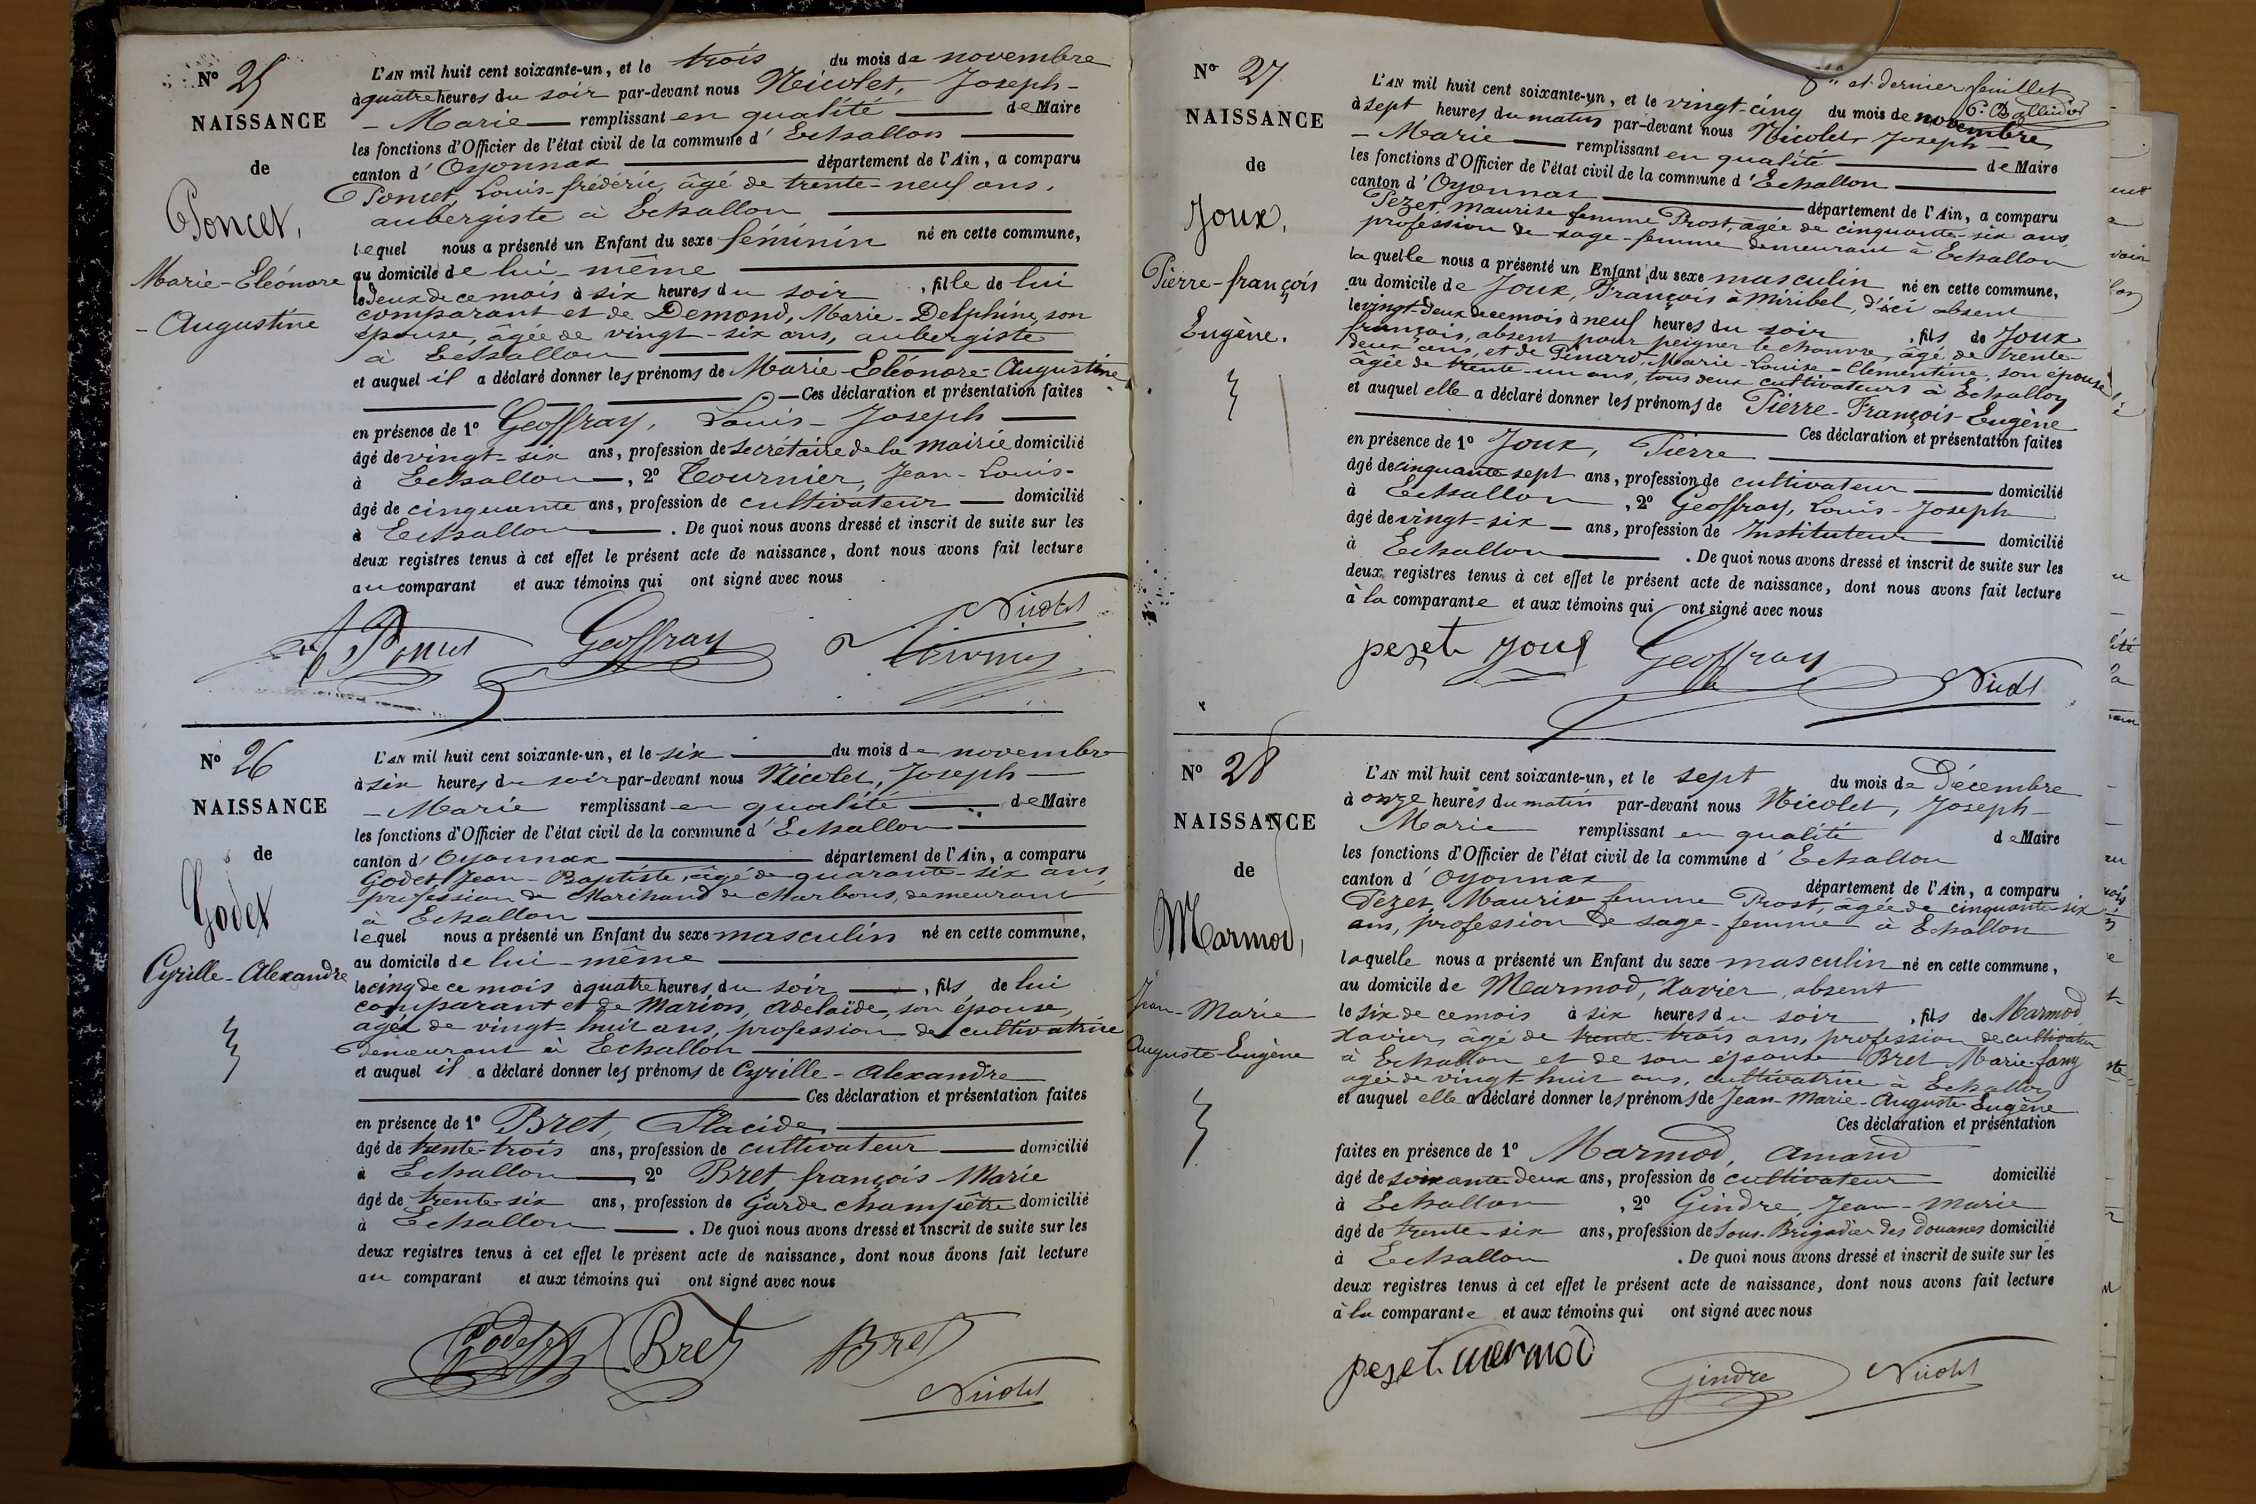 N° 25
NAISSANCE
de
Poncet,
Marie-Eléonore
-Augustine
L'AN mil huit cent soixante-un, et le trois du mois de novembre
à quatre heures du soir par-devant nous Nicolet, Joseph-
-Marie remplissant en qualité de Maire
les fonctions d'Officier de l'état civil de la commune d'Echallon
canton d'Oyonnax département de l'Ain, a comparu
Poncet, Louis-frédéric, âgé de trente-neuf ans,
aubergiste à Echallon
lequel nous a présenté un Enfant du sexe féminin né en cette commune,
au domicile de lui-même
le deux de ce mois à six heures du soir, fille de lui
comparant et de Demond, Marie-Delphine, son
épouse, âgée de vingt-six ans, aubergiste
à Echallon
et auquel il a déclaré donner les prénoms de Marie-Eléonore-Augustine
Ces déclaration et présentation faites
en présence de 1° Geoffray, Louis-Joseph
âgé de vingt-six ans, profession de secrétaire de la mairie domicilié
à Echallon, 2° Tournier, Jean-Louis-
âgé de cinquante ans, profession de cultivateur domicilié
à Echallon. De quoi nous avons dressé et inscrit de suite sur les
deux registres tenus à cet effet le présent acte de naissance, dont nous avons fait lecture
au comparant et aux témoins qui ont signé avec nous
Nicolet
Poncet Geoffray
N° 26
NAISSANCE
de
Godet
Cyrille-Alexandre
L'AN mil huit cent soixante-un, et le six du mois de novembre
à six heures du soir par-devant nous Nicolet, Joseph-
-Marie remplissant en qualité de Maire
les fonctions d'Officier de l'état civil de la commune d'Echallon
canton d'Oyonnax département de l'Ain, a comparu
Godet, Jean-Baptiste, âgé de quarante-six ans,
profession de Marchand de charbons, demeurant
à Echallon
lequel nous a présenté un Enfant du sexe masculin né en cette commune,
au domicile de lui-même
le cinq de ce mois à quatre heures du soir, fils de lui
comparant et de Marion, Adelaïde, son épouse,
agée de vingt-huit ans, profession de cultivatrice
demeurant à Echallon
et auquel il a déclaré donner les prénoms de Cyrille-Alexandre
Ces déclaration et présentation faites
en présence de 1° Bret, Placide
âgé de trente-trois ans, profession de cultivateur domicilié
à Echallon, 2° Bret françois Marie
âgé de trente-six ans, profession de Garde champêtre domicilié
à Echallon. De quoi nous avons dressé et inscrit de suite sur les
deux registres tenus à cet effet le présent acte de naissance, dont nous avons fait lecture
au comparant et aux témoins qui ont signé avec nous
Godet Bret Bret
Nicolet
et dernier feuillet
N° 27
NAISSANCE
de
Joux,
Pierre-françois
Eugène.
L'AN mil huit cent soixante-un, et le vingt-cinq du mois de novembre
à sept heures du matin par-devant nous Nicolet Joseph-
-Marie remplissant en qualité de Maire
les fonctions d'Officier de l'état civil de la commune d'Echallon
canton d'Oyonnax département de l'Ain, a comparu
Pezet, Maurise femme Prost, âgée de cinquante-six ans,
profession de sage-femme demeurant à Echallon
laquelle nous a présenté un Enfant du sexe masculin né en cette commune,
au domicile de Joux, François à Miribel, d'ici absent
le vingt-deux de ce mois à neuf heures du soir, fils de Joux
françois, absent pour peigner le chanvre, âgé de trente-
deux ans, et de Pinard, Marie-Louise-Clementine, son épouse
âgée de trente-un ans, tous deux cultivateurs à Echallon
et auquel elle a déclaré donner les prénoms de Pierre-François-Eugène
Ces déclaration et présentation faites
en présence de 1° Joux, Pierre
âgé de cinquante sept ans, profession de cultivateur domicilié
à Echallon, 2° Geoffray, Louis-Joseph
âgé de vingt-six ans, profession de Instituteur domicilié
à Echallon. De quoi nous avons dressé et inscrit de suite sur les
deux registres tenus à cet effet le présent acte de naissance, dont nous avons fait lecture
à la comparante et aux témoins qui ont signé avec nous
pezet joux Geoffray
Nicolet
N° 28
NAISSANCE
de
Marmod,
Jean-Marie
Auguste-Eugène
L'AN mil huit cent soixante-un, et le sept du mois de Décembre
à onze heures du matin par-devant nous Nicolet, Joseph-
Marie remplissant en qualité de Maire
les fonctions d'Officier de l'état civil de la commune d'Echallon
canton d'Oyonnax département de l'Ain, a comparu
Pezet, Maurise femme Prost, âgée de cinquante-six
ans, profession de sage-femme à Echallon
laquelle nous a présenté un Enfant du sexe masculin né en cette commune,
au domicile de Marmod, Xavier, absent
le six de ce mois à six heures du soir, fils de Marmod
Xavier, âgé de trente-trois ans, profession de cultivateur
à Echallon et de son épouse Bret Marie-fany
agée de vingt-huit ans, cultivatrice à Echallon
et auquel elle a déclaré donner les prénoms de Jean-Marie-Auguste-Eugène
Ces déclaration et présentation
faites en présence de 1° Marmod, Amand
âgé de soixante-deux ans, profession de cultivateur domicilié
à Echallon, 2° Gindre, Jean-Marie
âgé de trente-six ans, profession de Sous-Brigadier des Douanes domicilié
à Echallon. De quoi nous avons dressé et inscrit de suite sur les
deux registres tenus à cet effet le présent acte de naissance, dont nous avons fait lecture
à la comparante et aux témoins qui ont signé avec nous
pezet mermod
Gindre Nicolet